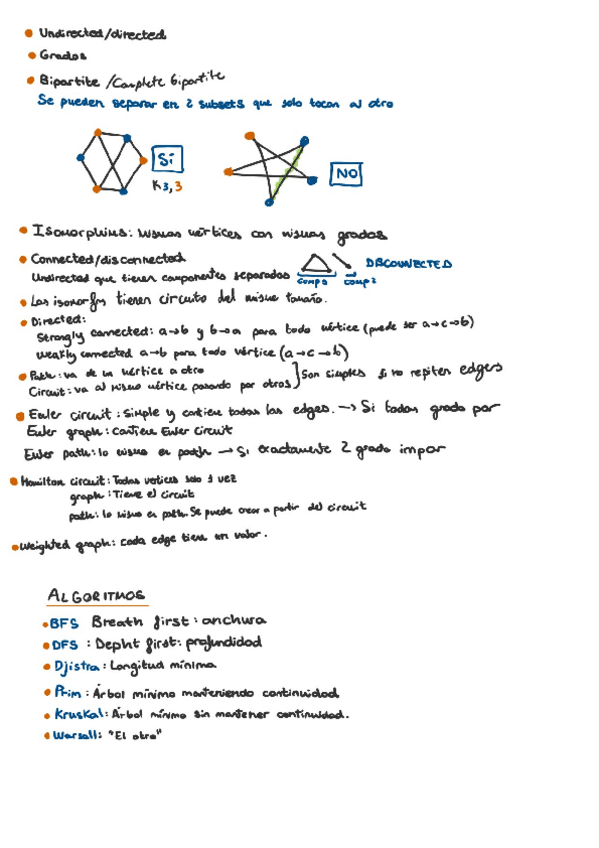 Undirected/directed
Grados
Bipartite /Complete bipartite
Se pueden separar en 2 subsets que solo tocan al otro
Sí
K3,3
NO
Isomorphims: mismos vértices con mismos grados
Connected/disconnected
Undirected que tienen componentes separados
comp 1
comp 2
DISCONNECTED
Los isomorfos tienen circuito del mismo tamaño.
Directed:
Strongly connected: a→b y b→a para todo vértice (puede ser a→c→b)
Weakly connected a→b para todo vértice (a→c→b)
Path: va de un vértice a otro
Circuit: va al mismo vértice pasando por otros
Son simples si no repiten edges
Euler circuit: Simple y contiene todas las edges. → Si todas grado par
Euler graph: Contiene Euler Circuit
Euler path: lo mismo en path → Si exactamente 2 grado impar
Hamilton circuit: Todas vertices solo 1 vez
graph: Tiene el circuit
path: lo mismo en path. Se puede crear a partir del circuit
Weighted graph: cada edge tiene un valor.
ALGORITMOS
BFS Breath first: anchura
DFS: Depht first: profundidad
Djistra: Longitud mínima
Prim: Árbol mínimo manteniendo continuidad
Kruskal: Árbol mínimo sin mantener continuidad.
Warsall: "El otro"